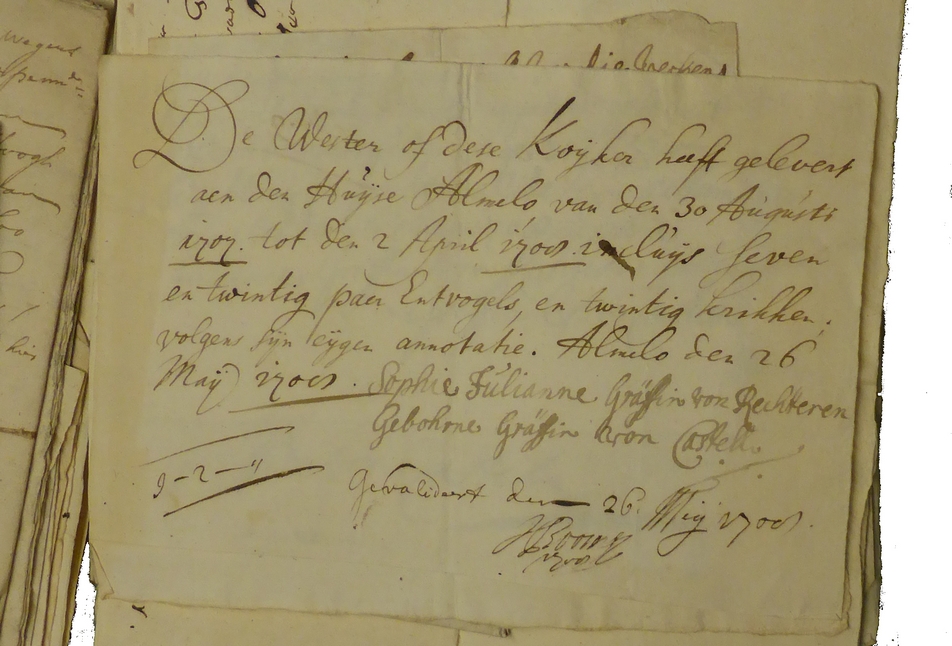 De Wester of dese Koyker heeft gelevert
aen den Huÿse Almelo, van den 30 Augusti
1707. tot den 2 April 1708. incluÿs seven
en twintig paer Entvogels, en twintig krikken,
volgens sÿn eÿgen annotatie. Almelo den 26
Maÿ 1708. Sophie Julianne Gräffin von Rechteren
Gebohrne Gräffin von Castell.
9-2-"
Gevalideert den 26. Meÿ 1708.